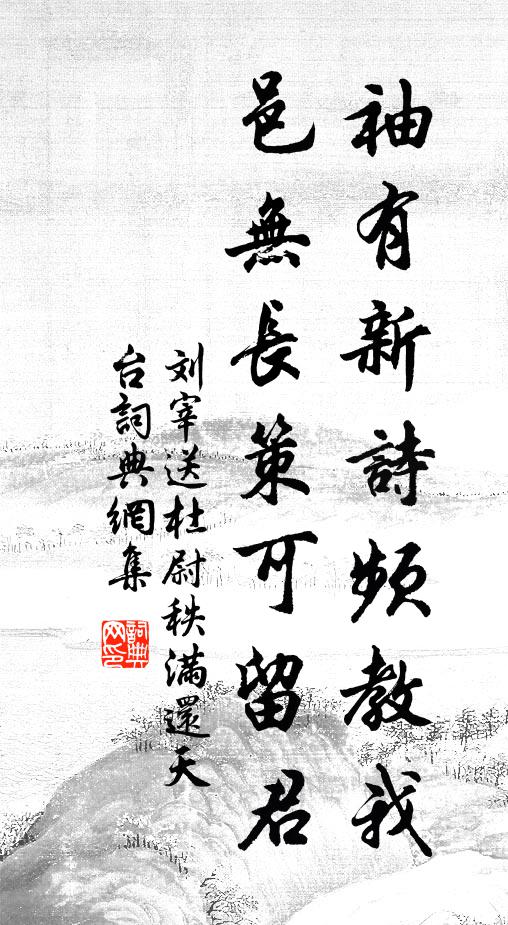 袖有新詩頻教我
邑無長策可留君
刘宰送杜尉秩滿還天
台詞典網集
詞典网印